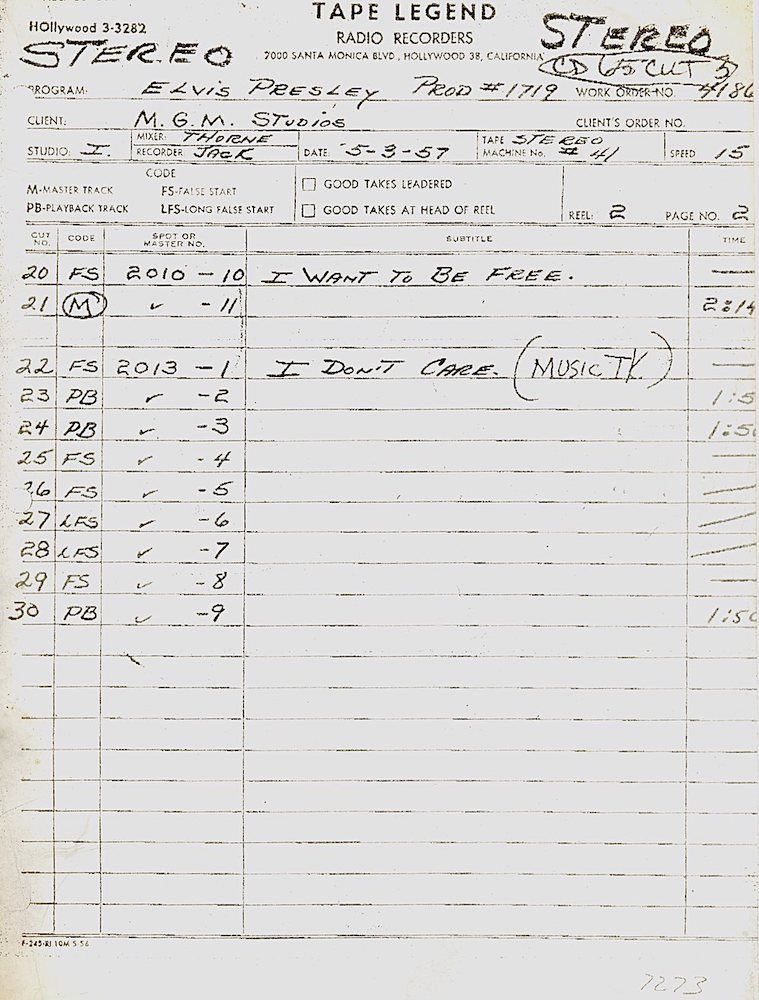 TAPE LEGEND
HOllywood 3-3282
RADIO RECORDERS
STEREO
STEREO
7000 SANTA MONICA BLVD., HOLLYWOOD 38, CALIFORNIA
CD CUT 5
PROGRAM: ELVIS PRESLEY PROD #1719 WORK ORDER NO. 4186
CLIENT: M. G. M. STUDIOS CLIENT'S ORDER NO.
STUDIO: I. MIXER: THORNE RECORDER JACK DATE: 5-3-57 TAPE STEREO MACHINE No. #41 SPEED 15
CODE
M-MASTER TRACK FS-FALSE START GOOD TAKES LEADERED
PB-PLAYBACK TRACK LFS-LONG FALSE START GOOD TAKES AT HEAD OF REEL REEL: 2 PAGE NO. 2
CUT NO. CODE SPOT OR MASTER NO. SUBTITLE TIME
20 FS 2010 - 10 I WANT TO BE FREE. —
21 M ✓ - 11 2:14
22 FS 2013 - 1 I DON'T CARE. (MUSIC TK.) —
23 PB ✓ - 2 1:5
24 PB ✓ - 3 1:50
25 FS ✓ - 4 —
26 FS ✓ - 5 —
27 LFS ✓ - 6 —
28 LFS ✓ - 7 —
29 FS ✓ - 8 —
30 PB ✓ - 9 1:50
F-245-RJ 10M 5 56
7273